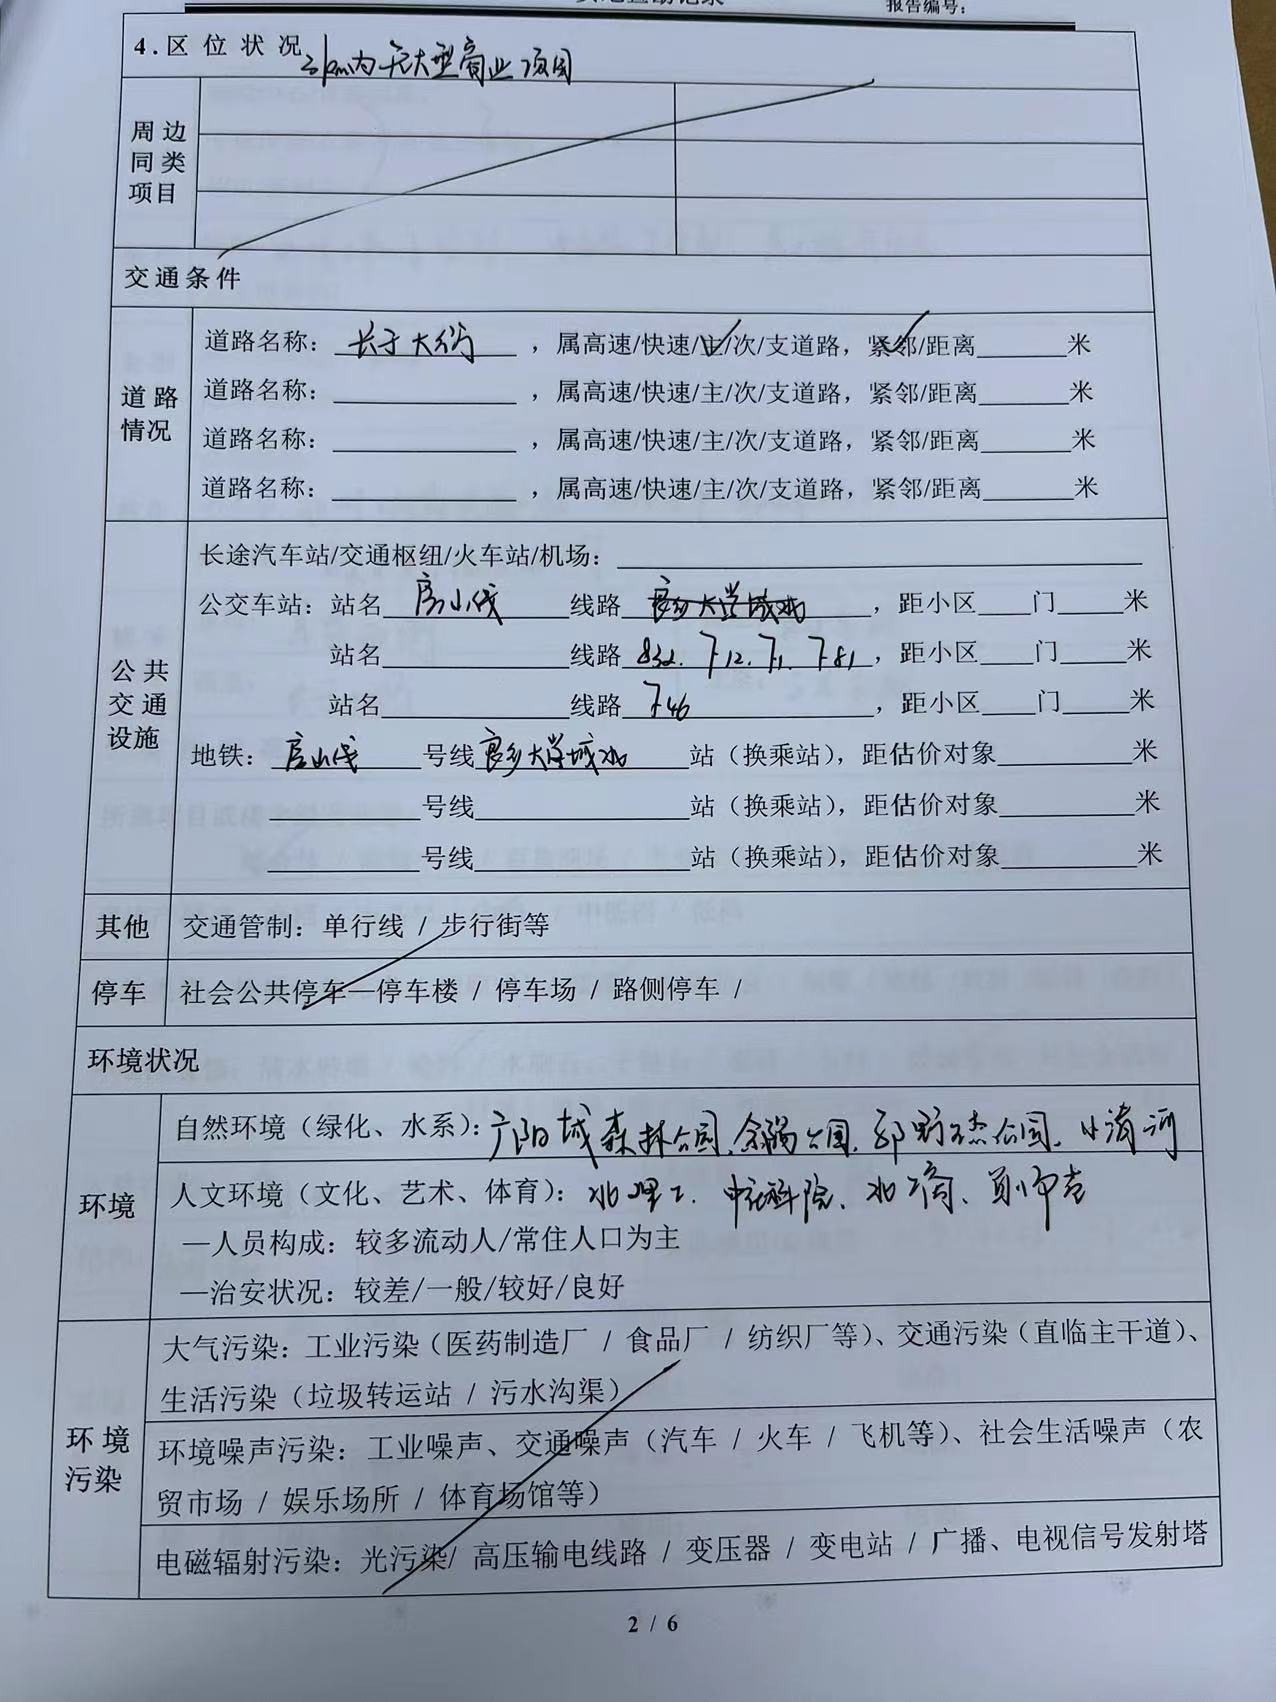 实地查勘记录
报告编号：
4.区 位 状 况 3km内无大型商业项目
周边同类项目
交通条件
道路情况
道路名称：长于大街，属高速/快速/主/次/支道路，紧邻/距离______米
道路名称：______，属高速/快速/主/次/支道路，紧邻/距离______米
道路名称：______，属高速/快速/主/次/支道路，紧邻/距离______米
道路名称：______，属高速/快速/主/次/支道路，紧邻/距离______米
公共交通设施
长途汽车站/交通枢纽/火车站/机场：______
公交车站：站名 房山线 线路 良乡大学城站，距小区____门____米
站名______线路 832. F12. F1. F81，距小区____门____米
站名______线路 F46，距小区____门____米
地铁：房山线 号线 良乡大学城站 站（换乘站），距估价对象______米
______号线______站（换乘站），距估价对象______米
______号线______站（换乘站），距估价对象______米
其他 交通管制：单行线 / 步行街等
停车 社会公共停车—停车楼 / 停车场 / 路侧停车 /
环境状况
环境
自然环境（绿化、水系）：广阳城森林公园、公园、公园、小清河
人文环境（文化、艺术、体育）：北理工、中社科院、北工商、首师大
—人员构成：较多流动人/常住人口为主
—治安状况：较差/一般/较好/良好
环境污染
大气污染：工业污染（医药制造厂 / 食品厂 / 纺织厂等）、交通污染（直临主干道）、
生活污染（垃圾转运站 / 污水沟渠）
环境噪声污染：工业噪声、交通噪声（汽车 / 火车 / 飞机等）、社会生活噪声（农
贸市场 / 娱乐场所 / 体育场馆等）
电磁辐射污染：光污染/ 高压输电线路 / 变压器 / 变电站 / 广播、电视信号发射塔
2 / 6